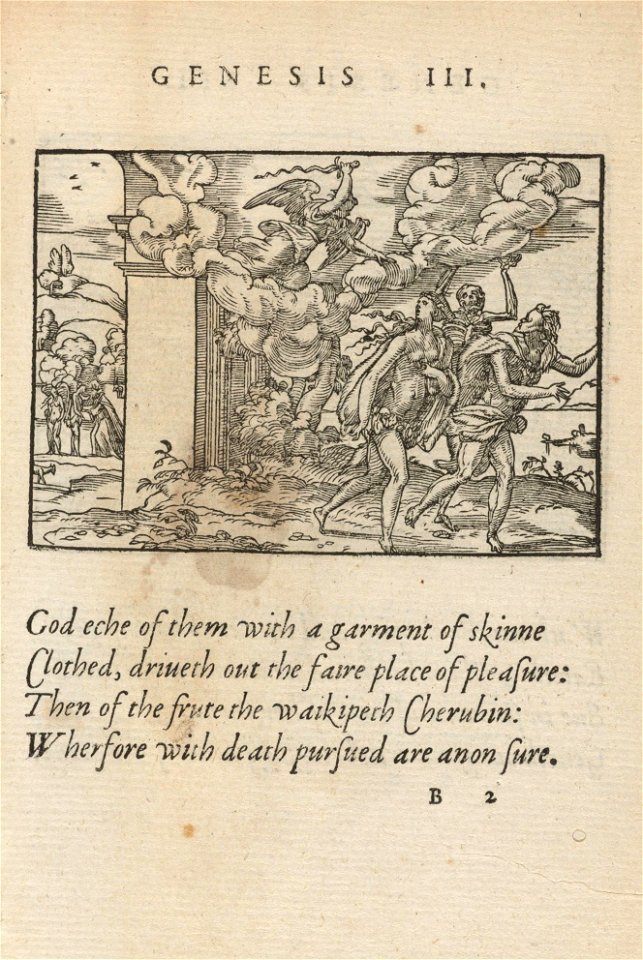 GENESIS III.
God eche of them with a garment of skinne
Clothed, driueth out the faire place of pleaſure:
Then of the frute the waikipeth Cherubin:
Wherfore with death purſued are anon ſure.
B 2